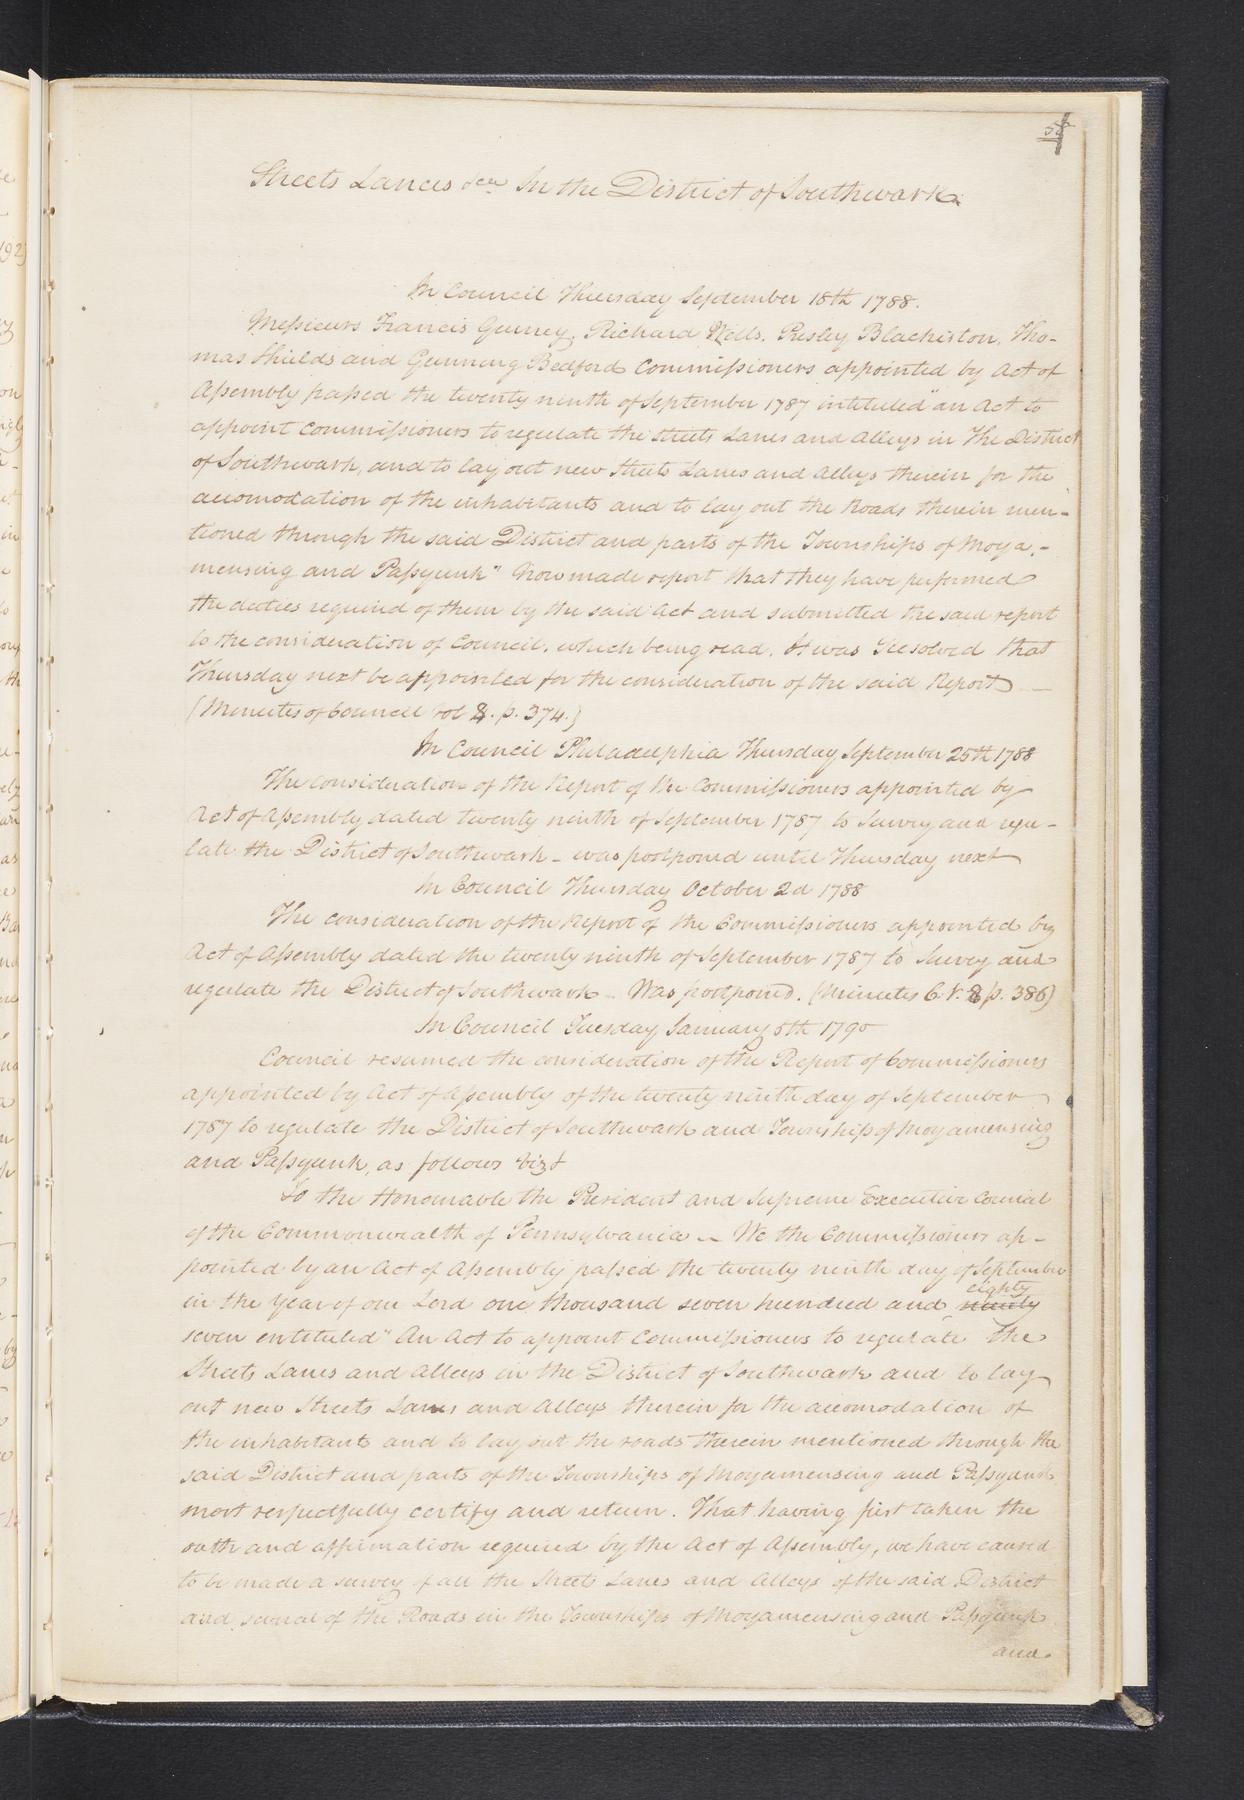 Streets Lanes &ca In the District of Southwark.
In Council Thursday September 18th 1788.
Messieurs Francis Gurney, Richard Wells, Presley Blackiston, Tho-
mas Shields and Gunning Bedford Commissioners appointed by Act of
Assembly passed the twenty ninth of September 1787 intituled "an Act to
appoint Commissioners to regulate the streets Lanes and Alleys in the District
of Southwark, and to lay out new Streets Lanes and Alleys therein for the
accomodation of the inhabitants and to lay out the Roads therein men-
tioned through the said District and parts of the Townships of Moya,-
mensing and Passyunk" Now made report that they have performed
the duties required of them by the said Act and submitted the said report
to the consideration of Council, which being read. It was Resolved that
Thursday next be appointed for the consideration of the said Report
(Minutes of Council Vol 8. p. 374.)
In Council Philadelphia Thursday September 25th 1788
The consideration of the Report of the Commissioners appointed by
Act of Assembly dated twenty ninth of September 1787 to Survey and regu-
late the District of Southwark - was postponed until Thursday next
In Council Thursday October 2d 1788
The consideration of the Report of the Commissioners appointed by
Act of Assembly dated the twenty ninth of September 1787 to Survey and
regulate the District of Southwark - Was postponed. (Minutes C. V. 8 p. 386)
In Council Tuesday January 5th 1790
Council resumed the consideration of the Report of Commissioners
appointed by Act of Assembly of the twenty ninth day of September
1787 to regulate the District of Southwark and Township of Moyamensing
and Passyunk, as follows vizt
To the Honourable the President and Supreme Executive Council
of the Commonwealth of Pennsylvania - We the Commissioners ap-
pointed by an Act of Assembly passed the twenty ninth day of September
eighty
in the Year of our Lord one thousand seven hundred and ninety
seven entituled "An Act to appoint Commissioners to regulate the
Streets Lanes and Alleys in the District of Southwark and to lay
out new Streets Lanes and Alleys therein for the accomodation of
the inhabitants and to lay out the roads therein mentioned through the
said District and parts of the Townships of Moyamensing and Passyunk
most respectfully certify and return. That having first taken the
oath and affirmation required by the Act of Assembly, we have caused
to be made a survey of all the Streets Lanes and Alleys of the said District
and several of the Roads in the Townships of Moyamensing and Passyunk
and